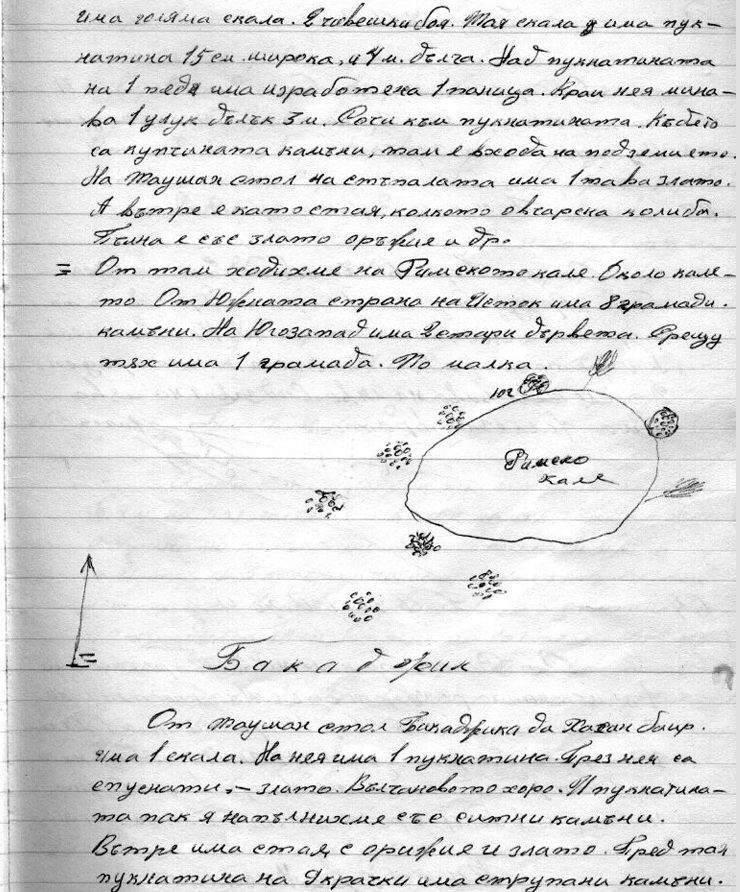 има голяма скала. 2 човешки боя. Тая скала има пук-
натина 15 см. широка, и 4 м. дълга. Над пукнатината
на 1 педя има изработена 1 паница. Край нея мина-
ва 1 улук дълъг 3 м. Сочи към пукнатината. Където
са купчината камъни, там е входа на подземието.
На Таушан стол на стъпалата има 1 тава злато.
А вътре е като стая, колкото овчарска колиба.
Пълна е със злато оръжие и др.
= От там ходихме на Римското кале. Около кале-
то. От Южната страна на Исток има 8 грамади.
камъни. На Югозапад има 2 стари дървета. Срещу
тях има 1 грамада. По малка.
юг
Римско
кале
Бакаджик
От таушан стол Бакаджика да Хасан баир.
има 1 скала. На нея има 1 пукнатина. През нея са
спуснати, – злато. Вълчановото хоро. И пукнатина-
та пак я напълнихме със ситни камъни.
Вътре има стая, с орижия и злато. Пред тая
пукнатина на крачки има струпани камъни.